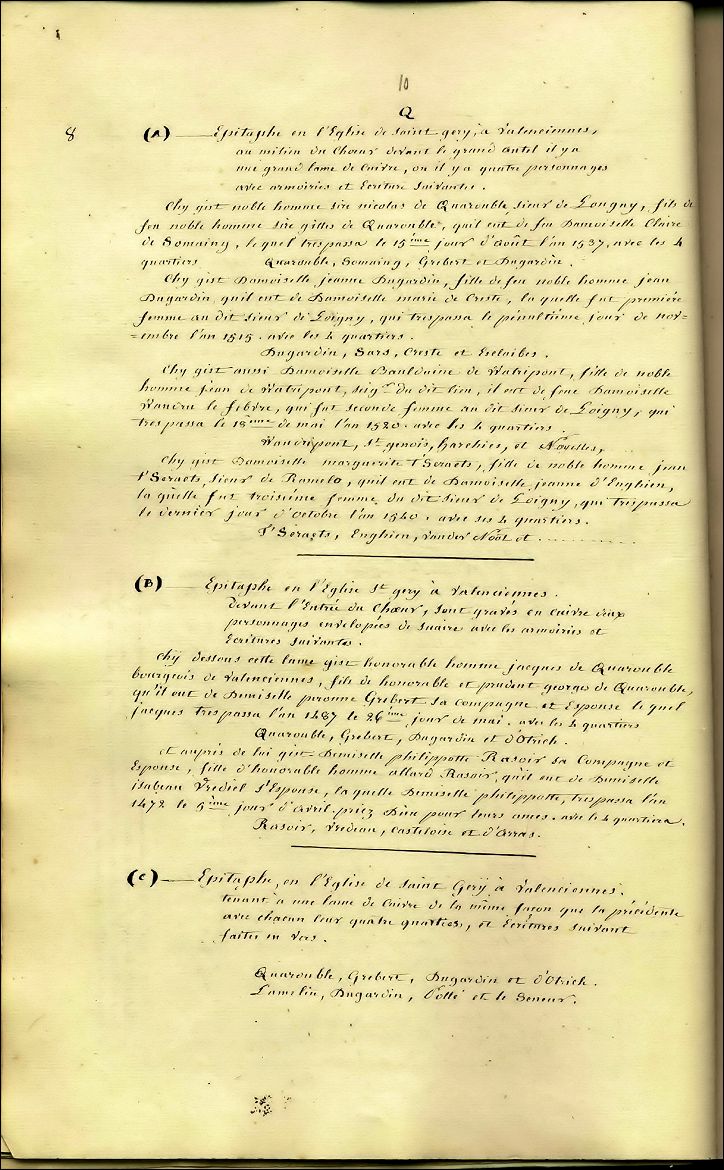 10
Q
8 (A) Epitaphe en l'Eglise de saint gery, à Valenciennes,
au milieu du Chœur devant le grand autel il y a
une grand lame de Cuivre, ou il y a quatre personnages
avec armoiries et Ecriture suivantes.
Chy gist noble homme sire nicolas de Quarouble, sieur de Loigny, fils de
feu noble homme sire gilles de Quarouble, qu'il eut de feu Damoiselle Claire
de Somaing, lequel trespassa le 15ème jour d'août l'an 1537, avec les 4
quartiers Quarouble, Somaing, Grebert et Dugardin.
Chy gist Damoiselle jeanne Dugardin, fille de feu noble homme jean
Dugardin, qu'il eut de Damoiselle marie de Creste, la quelle fut première
femme au dit sieur de Loigny, qui trespassa le pénultième jour de nov=
=embre l'an 1515. avec les 4 quartiers.
Dugardin, Sars, Creste et Esclaibes.
Chy gist aussi Damoiselle Bauldaine de Watripont, fille de noble
homme jean de Watripont, seigr du dit lieu, il eut de feue Damoiselle
Wandru le febvre, qui fut seconde femme au dit sieur de Loigny, qui
trespassa le 18ème de mai l'an 1520. avec les 4 quartiers
Wandripont, st genois, harchies, et Noyelles,
Chy gist Damoiselle marguerite T'Seraets, fille de noble homme jean
t'Seraets, sieur de Romelo, qu'il eut de Damoiselle jeanne d'Enghien,
la quelle fut troisième femme du dit sieur de Loigny, qui trespassa
le dernier jour d'octobre l'an 1540. avec ses 4 quartiers.
T'Seraets, Enghien, vander Noot et ...........
(B) Epitaphe en l'Eglise st gery à Valenciennes.
devant l'Entrée du Chœur, sont gravés en cuivre deux
personnages envelopées de suaire avec les armoiries et
Ecritures suivantes.
Chÿ dessous cette lame gist honorable homme jacques de Quarouble
bourgeois de Valenciennes, fils de honorable et prudent george de Quarouble,
qu'il eut de Demiselle peronne Grebert sa compagne et Espouse le quel
jacques trespassa l'an 1487 le 26ème jour de mai. avec les 4 quartiers
Quarouble, Grebert, Dugardin et d'Otrich.
et auprès de lui gist Demiselle philippotte Rasoir sa Compagne et
Espouse, fille d'honorable homme allard Rasoir, qu'il eut de Demiselle
isabeau Vrediel s'Espouse, la quelle Demiselle philippotte, trespassa l'an
1472 le 5ème jour d'avril. priez Dieu pour leurs ames. avec les 4 quartiers.
Rasoir, Vrediau, Casteloise et d'Arras.
(C) Epitaphe, en l'Eglise de Saint Gerÿ à Valenciennes.
tenant à une lame de Cuivre de la même façon que la précédente
avec chacun leur quatre quartiers, et Ecritures suivant
faites en vers.
Quarouble, Grebert, Dugardin et d'Otrich.
Lamelin, Dugardin, Potté et le Seneur.